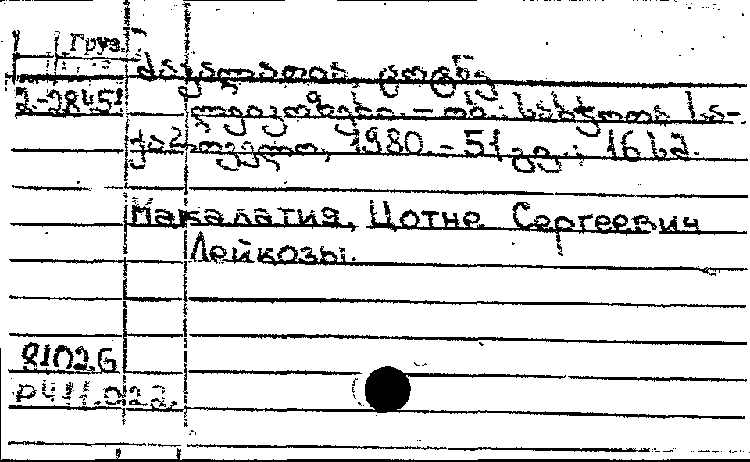 Груз.
მაკალათია, ცოტნე
2-28451
ლეიკოზები. - თბ.: საბჭოთა სა-
ქართველო, 1980. - 51 გვ.; 16 სმ.
Макалатия, Цотне Сергеевич
Лейкозы.
8102.G
Р411.022.